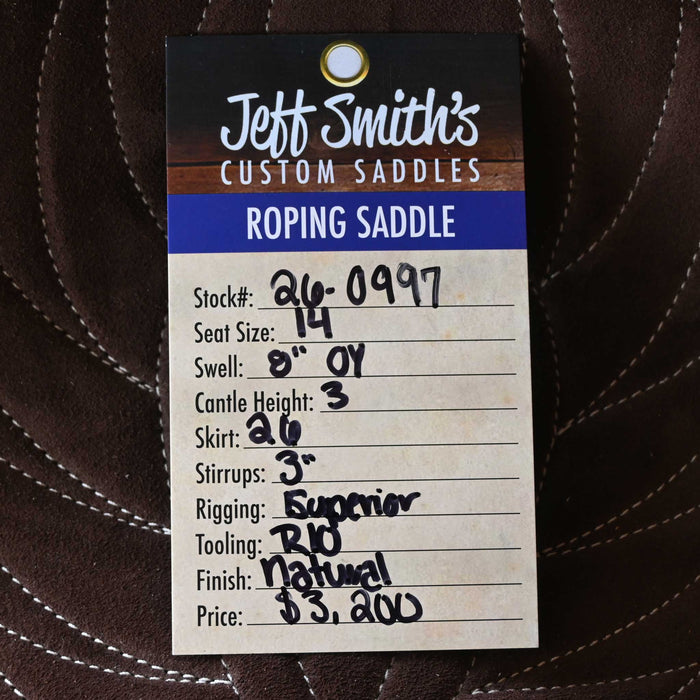 Jeff Smith's
CUSTOM SADDLES
ROPING SADDLE
Stock#: 26-0997
Seat Size: 14
Swell: 8" OY
Cantle Height: 3
Skirt: 26
Stirrups: 3"
Rigging: Superior
Tooling: R10
Finish: Natural
Price: $3,200